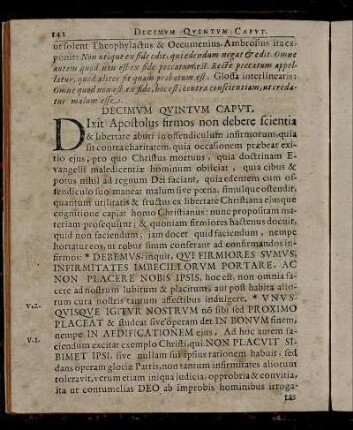 142 DECIMVM QVINTVM CAPVT.
ut solent Theophylactus & Oecumenius. Ambrosius ita ex
ponit: Non utique ex fide edit, qui edendum negat & edit. Omne
autem quod non est ex fide peccatum est. Recte peccatum appel-
latur, quod aliter fit quam probatum est. Glossa interlinearis:
Omne quod non est ex fide, hoc est, contra conscientiam, ut creda-
tur malum esse.
DECIMVM QVINTVM CAPVT.
DIxit Apostolus firmos non debere scientia
& libertate abuti in offendiculum infirmorum, quia
sit contra charitatem, quia occasionem præbeat exi-
tio ejus, pro quo Christus mortuus, quia doctrinam E-
vangelii maledicentiæ hominum obiiciat, quia cibus &
potus nihil ad regnum Dei faciant, quia edentem cum of-
fendiculo suo maneat malum sive pœna, simulque ostendit,
quantum utilitatis & fructus ex libertate Christiana ejusque
cognitione capiat homo Christianus: nunc propositam ma-
teriam prosequitur; & quoniam firmiores hactenus docuit,
quid non faciendum; jam docet quid faciendum, nempe
hortatur eos, ut robur suum conferant ad confirmandos in-
firmos: * DEBEMVS, inquit, QVI FIRMIORES SVMVS,
INFIRMITATES IMBECILLORVM PORTARE, AC
NON PLACERE NOBIS IPSIS, hoc est, non omnia fa-
cere ad nostrum lubitum & placitum, aut post habita alio-
rum cura nostris tantum affectibus indulgere. * VNVS-
v.2. QVISQVE IGITVR NOSTRVM nō sibi sed PROXIMO
PLACEAT & studeat sive operam det IN BONVM finem,
nempe IN AEDIFICATIONEM ejus. * Ad hoc autem fa-
v.3. ciendum excitat exemplo Christi, qui NON PLACVIT SI-
BIMET IPSI, sive nullam sui ipsius rationem habuit; sed
dans operam gloriæ Patris, non tantum infirmitates aliorum
toleravit, verum etiam iniqua judicia, opprobria & convitia,
ita ut contumelias DEO ab improbis hominibus irroga-
tas